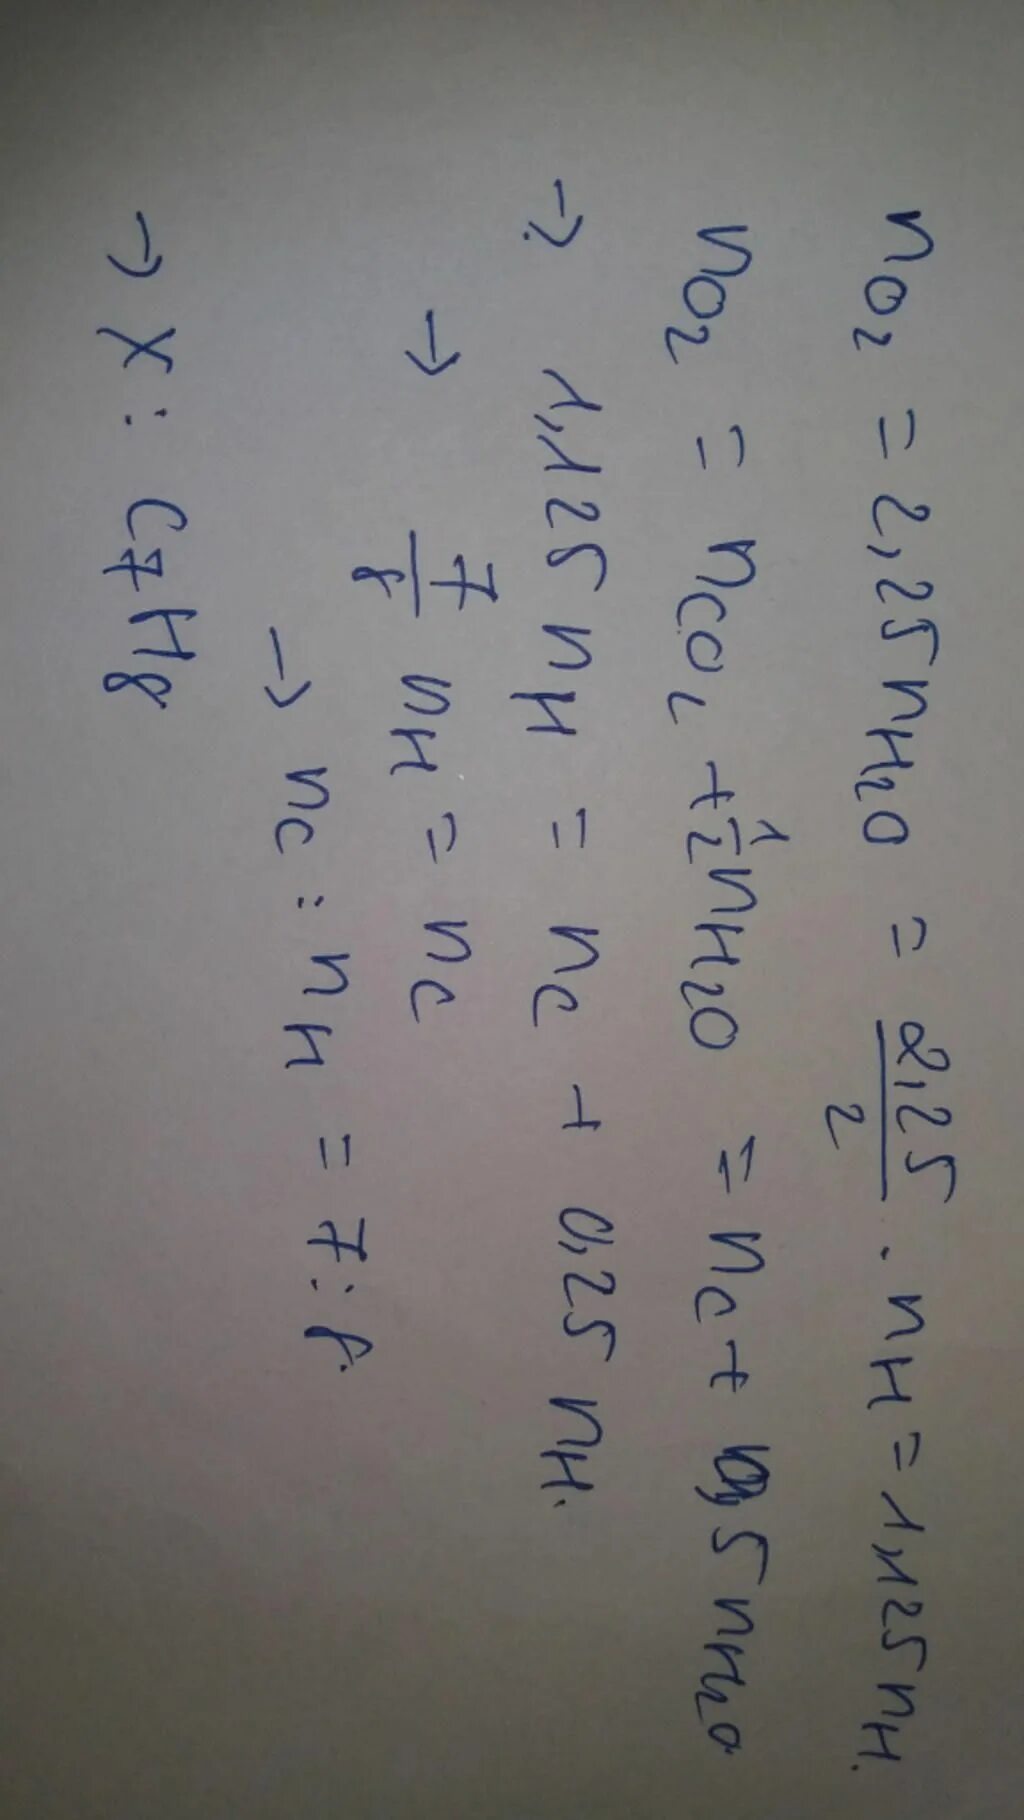 n_O2 = 2,25 n_H2O = 2,25/2 . n_H = 1,125 n_H.
n_O2 = n_CO2 + 1/2 n_H2O = n_C + 0,5 n_H2O
→ 1,125 n_H = n_C + 0,25 n_H.
→ 7/8 n_H = n_C
→ n_C : n_H = 7 : 8.
→ X : C7H8